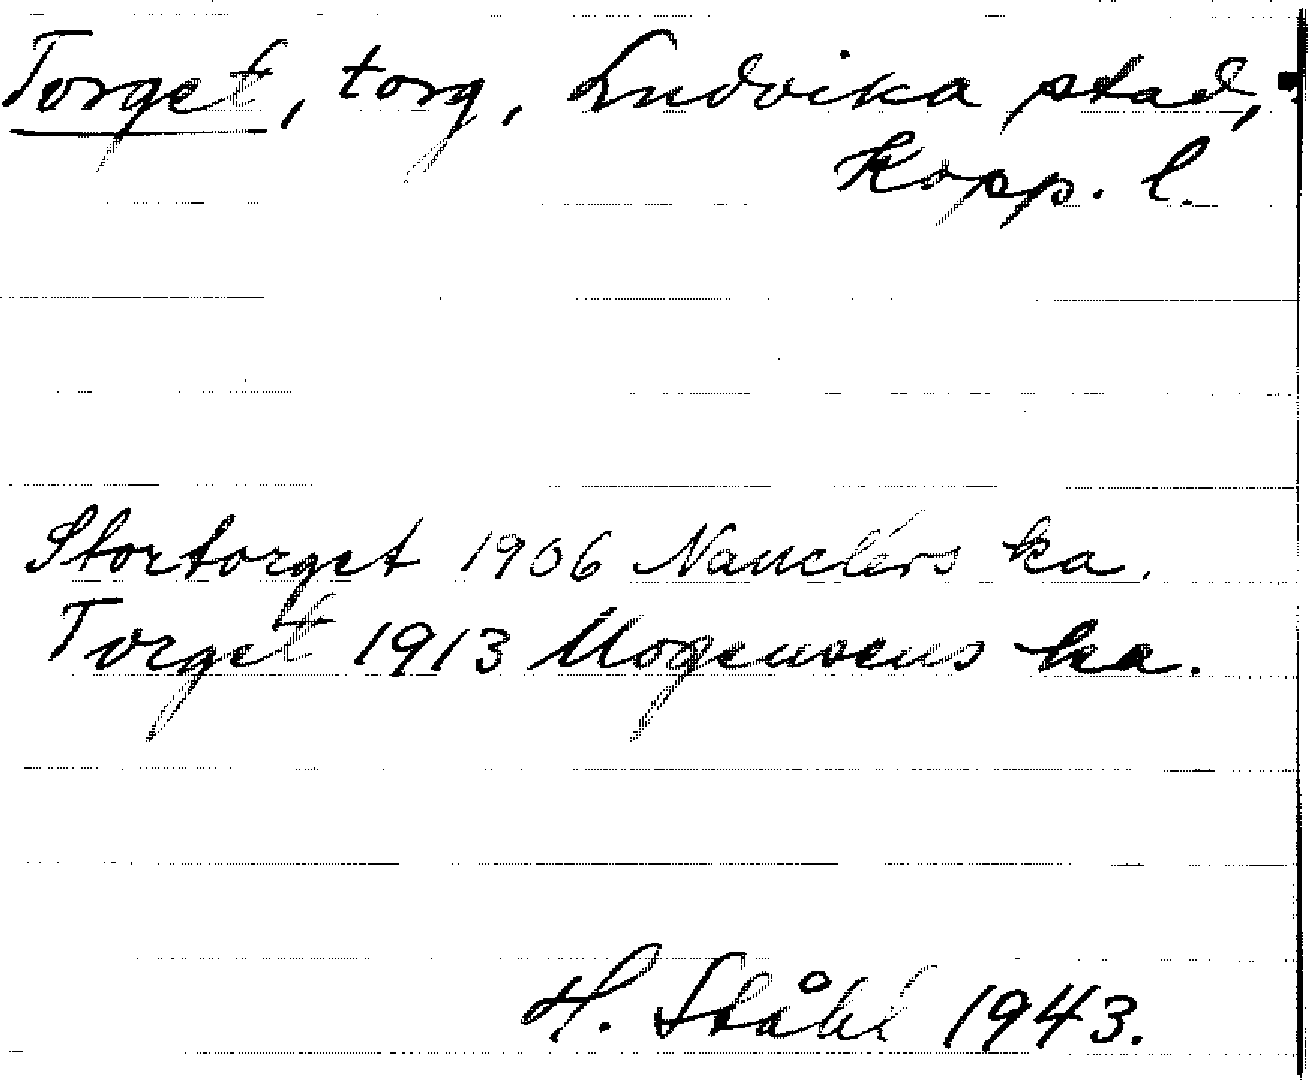 Torget, torg, Ludvika stad,
Kopp. l.
Stortorget 1906 Nauclérs ka.
Torget 1913 Mogensens ka.
H. Ståhl 1943.